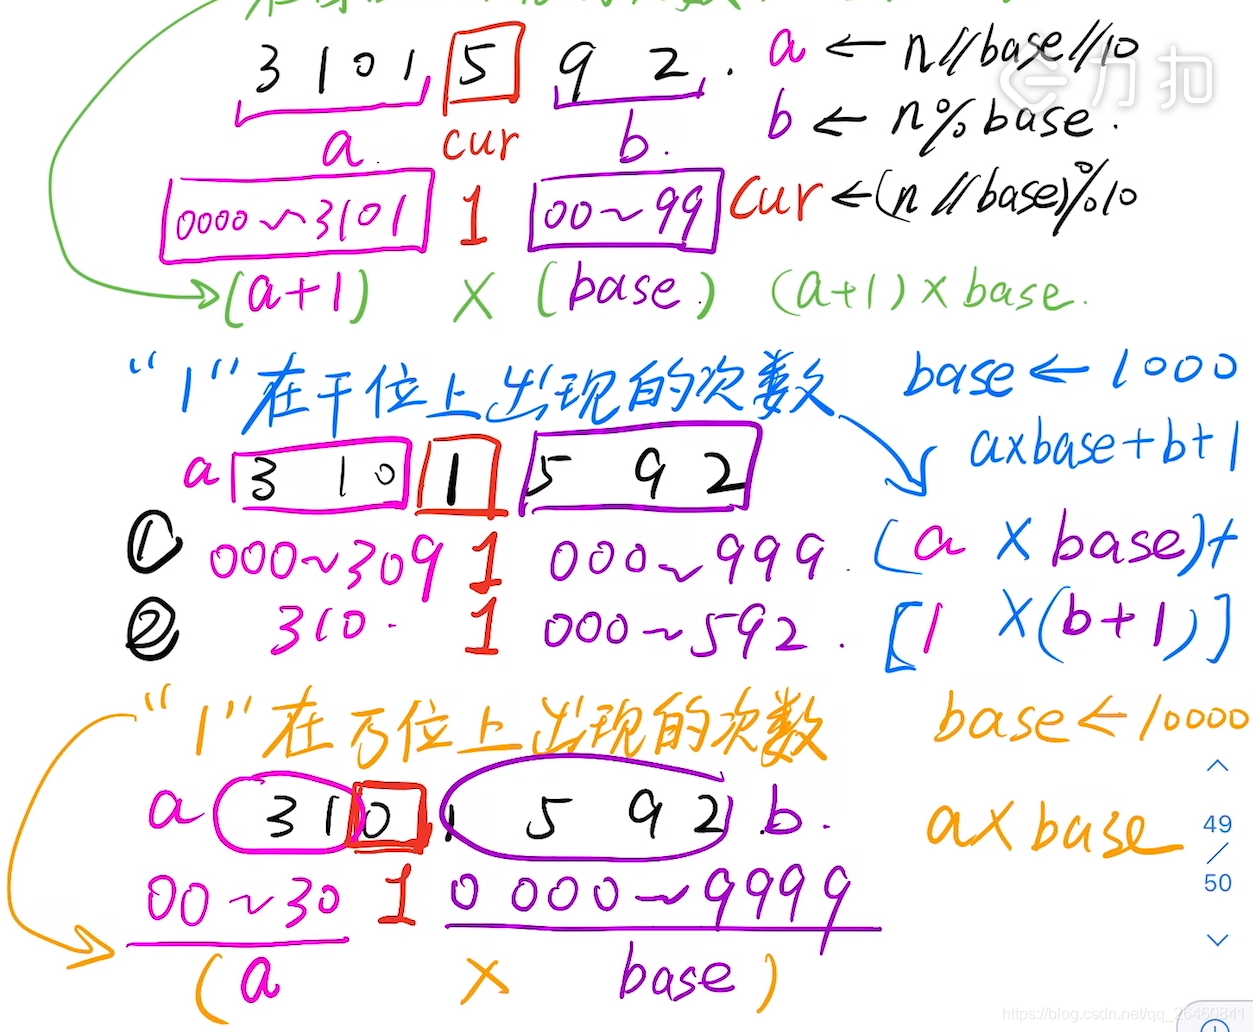 3 1 0 1 5 9 2 . a ← n//base//10
力扣
a. cur b. b ← n%base.
0000~3101 1 00~99 cur ←(n//base)%10
(a+1) × (base) (a+1)×base.
"1"在千位上出现的次数 base ← 1000
a×base+b+1
a 3 1 0 1 5 9 2
① 000~309 1 000~999. (a × base)+
② 310. 1 000~592. [1 ×(b+1)]
"1"在万位上出现的次数 base ← 10000
a 3 1 0 1 5 9 2 b.
a×base
49
/
50
00~30 1 0000~9999
(a × base)
https://blog.csdn.net/qq_26460841